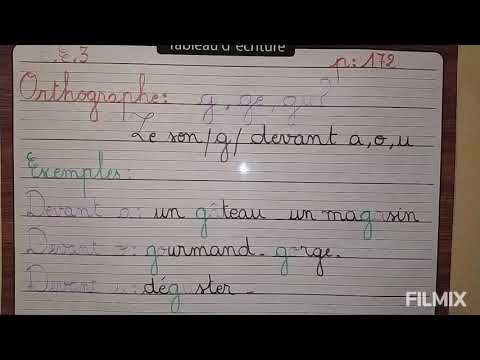 Tableau d'écriture
E.3 p: 172
Orthographe: g, ge, gu?
Le son /g/ devant a, o, u
Exemples:
Devant a: un gâteau un magasin
Devant o: gourmand. gorge.
Devant u: déguster -
FILMIX